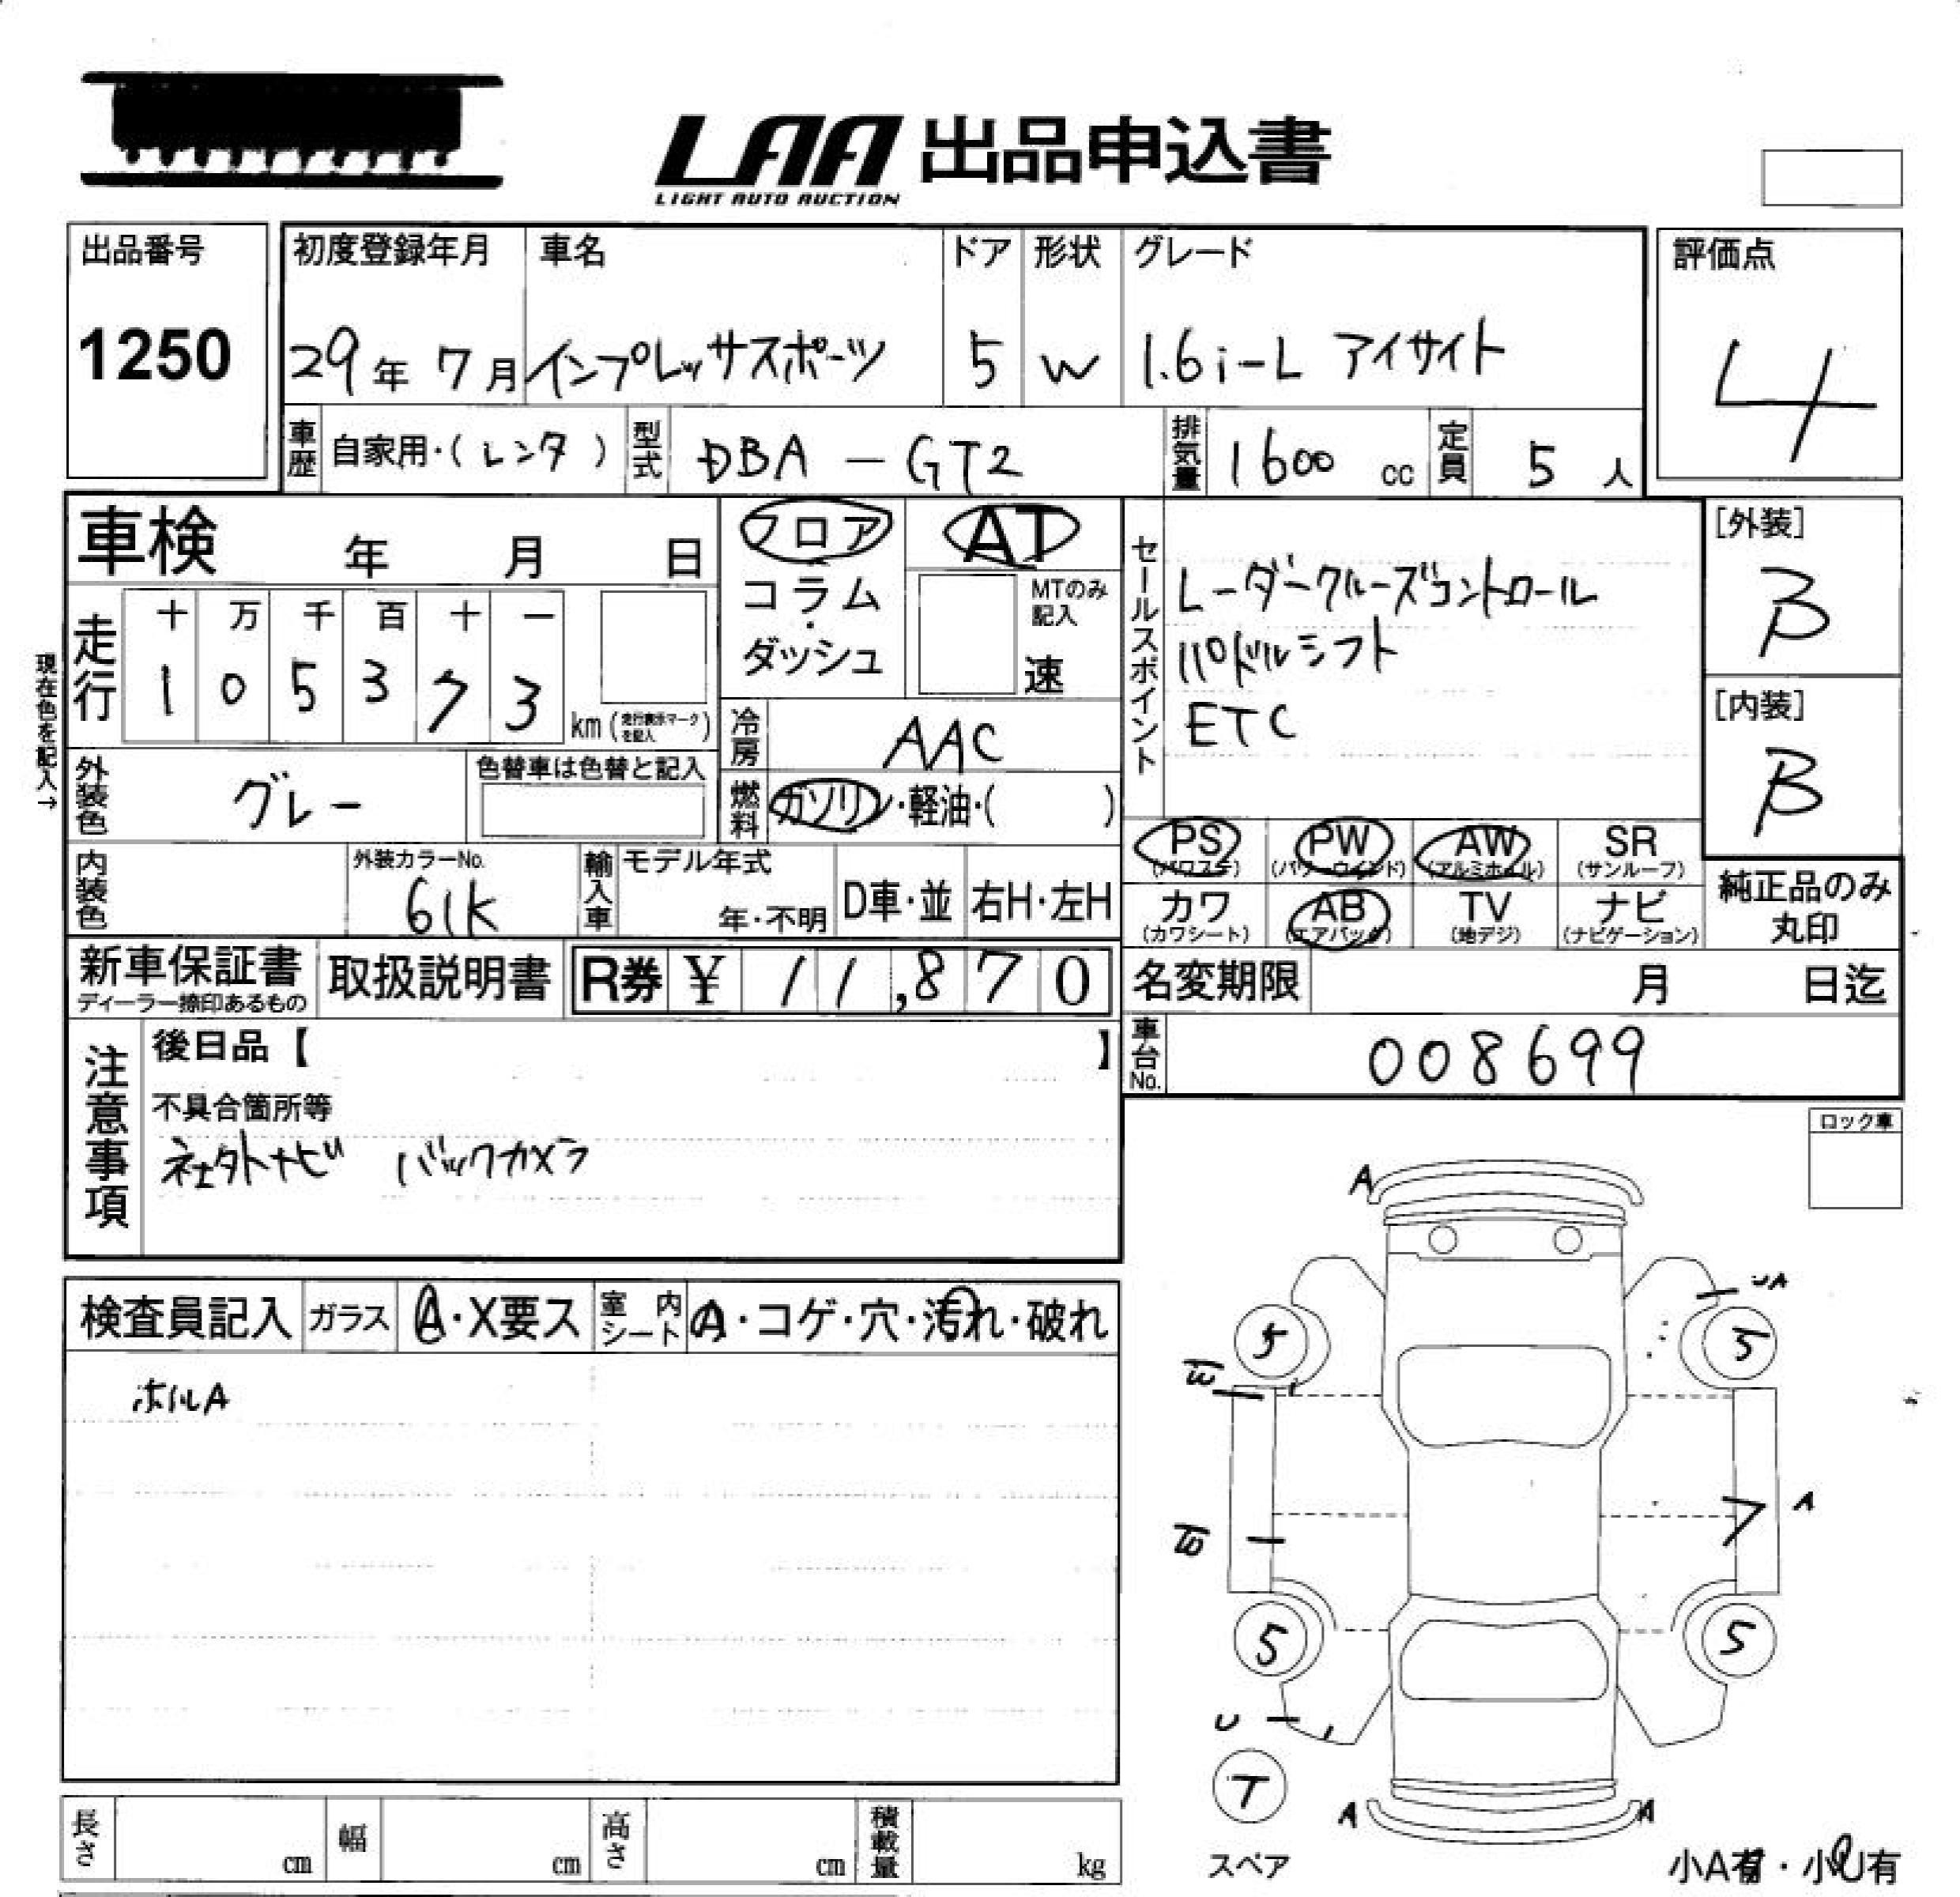 LAA 出品申込書
LIGHT AUTO AUCTION
出品番号
1250
初度登録年月 車名 ドア 形状 グレード
29年 7月 インプレッサスポーツ 5 W 1.6i-L アイサイト
評価点
4
車歴 自家用・(レンタ) 型式 DBA-GT2 排気量 1600 cc 定員 5 人
車検 年 月 日
フロア
コラム
・
ダッシュ
AT
MTのみ
記入
速
走行 十 万 千 百 十 一
1 0 5 3 7 3
km (走行表示マークを記入)
現在色を記入→
冷房 AAC
外装色 グレー 色替車は色替と記入
燃料 ガソリン・軽油・( )
内装色 外装カラーNo.
61K
輸入車 モデル年式
年・不明 D車・並 右H・左H
セールスポイント
レーダークルーズコントロール
パドルシフト
ETC
[外装]
B
[内装]
B
PS (パワステ) PW (パワーウインド) AW (アルミホイル) SR (サンルーフ)
カワ (カワシート) AB (エアバッグ) TV (地デジ) ナビ (ナビゲーション)
純正品のみ
丸印
新車保証書
ディーラー捺印あるもの
取扱説明書 R券 ¥ 11,870
名変期限 月 日迄
車台No. 008699
注意事項
後日品【 】
不具合箇所等
社外ナビ バックカメラ
ロック車
検査員記入 ガラス A・X要ス 室内シート A・コゲ・穴・汚れ・破れ
ホイルA
A
UA
5 5
A
5 5
U
T
スペア
A A
小A有・小U有
長さ cm 幅 cm 高さ cm 積載量 kg